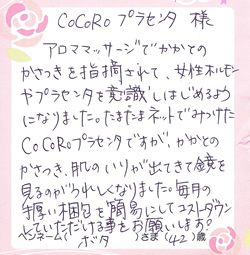 CoCoRo プラセンタ 様
アロママッサージでかかとの
かさつきを指摘されて、女性ホルモン
やプラセンタを意識しはじめるよう
になりました。たまたまネットでみつけた
CoCoRoプラセンタですが、かかとの
かさつき、肌のハリが出てきて鏡を
見るのがうれしくなりました。毎月の
手厚い梱包を簡易にしてコストダウン
していただける事をお願いします?
ペンネーム( ボタ )さま(42)歳